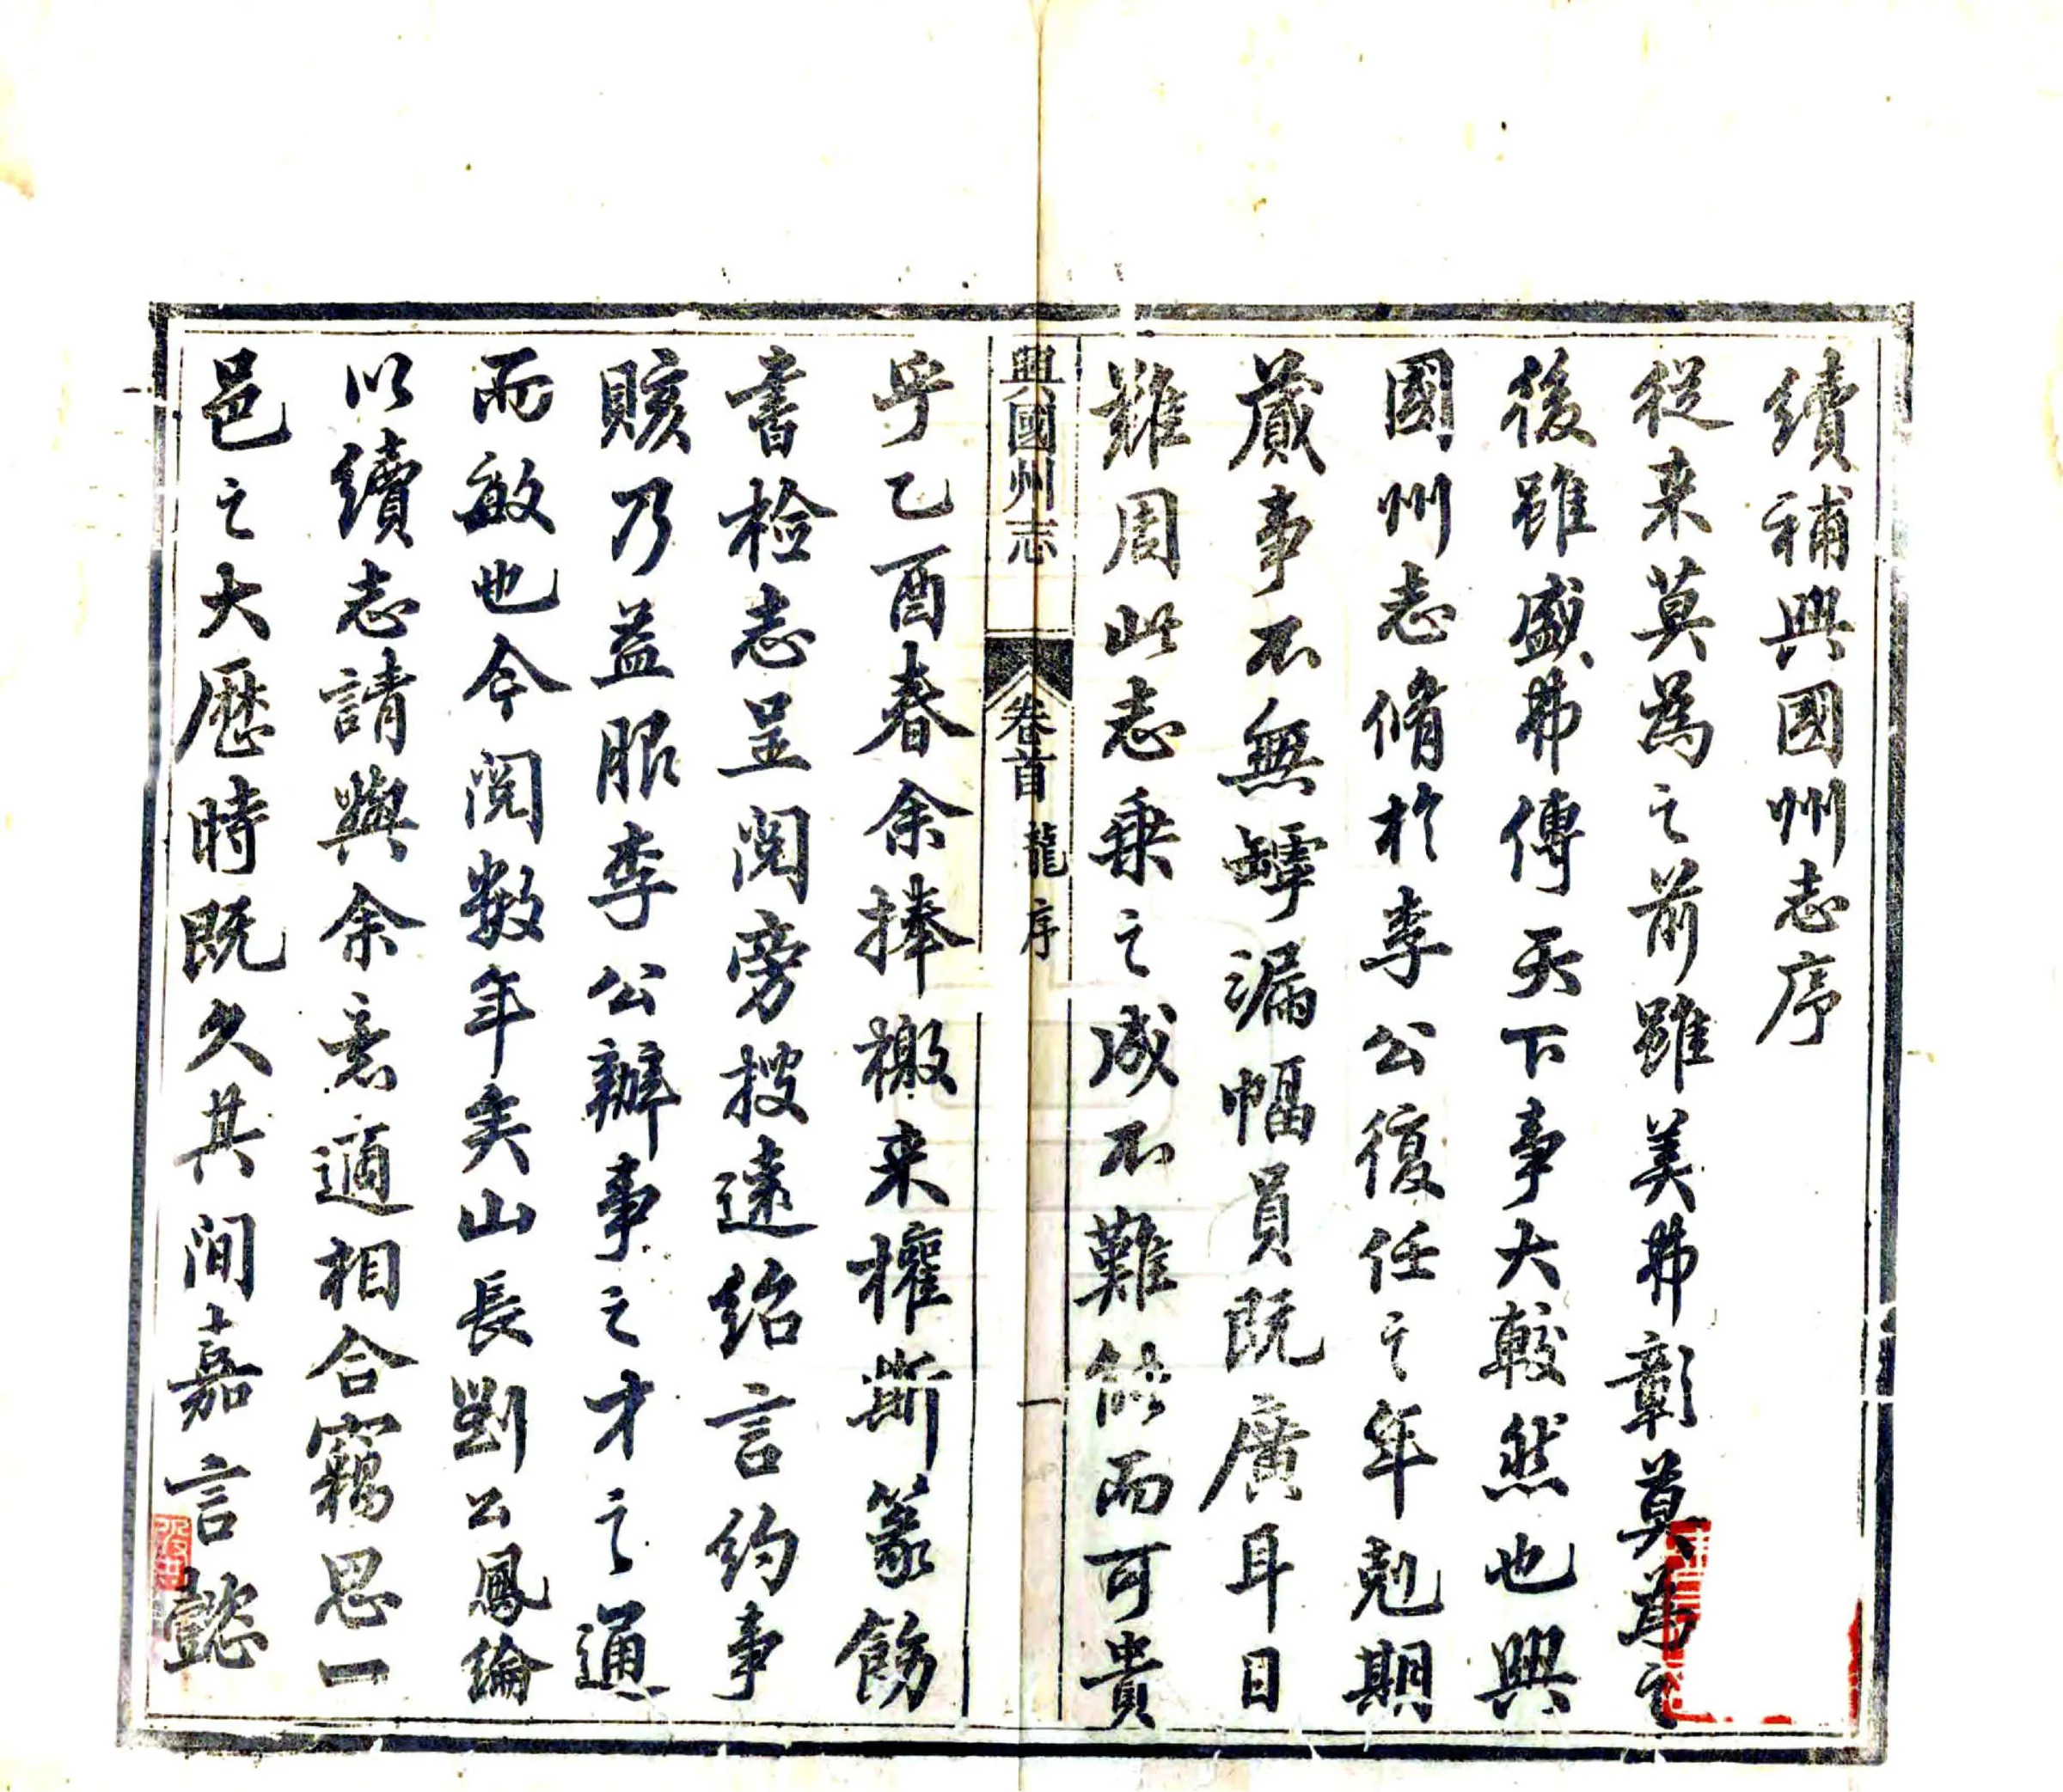 續補興國州志序
從来莫為之前雖美弗彰莫為之
後雖盛弗傳天下事大較然也興
國州志脩於李公復任之年剋期
蕆事不無罅漏幅員既廣耳目
難周此志乗之成不難能而可貴
興國州志 卷首 龍序 一
乎乙酉春余捧檄来權斯篆飭
書检志呈閱旁搜遠紹言约事
賅乃益服李公辦事之才之通
而敏也今閱数年矣山長劉公鳳綸
以續志請與余意適相合竊思一
邑之大歷時既久其间嘉言懿